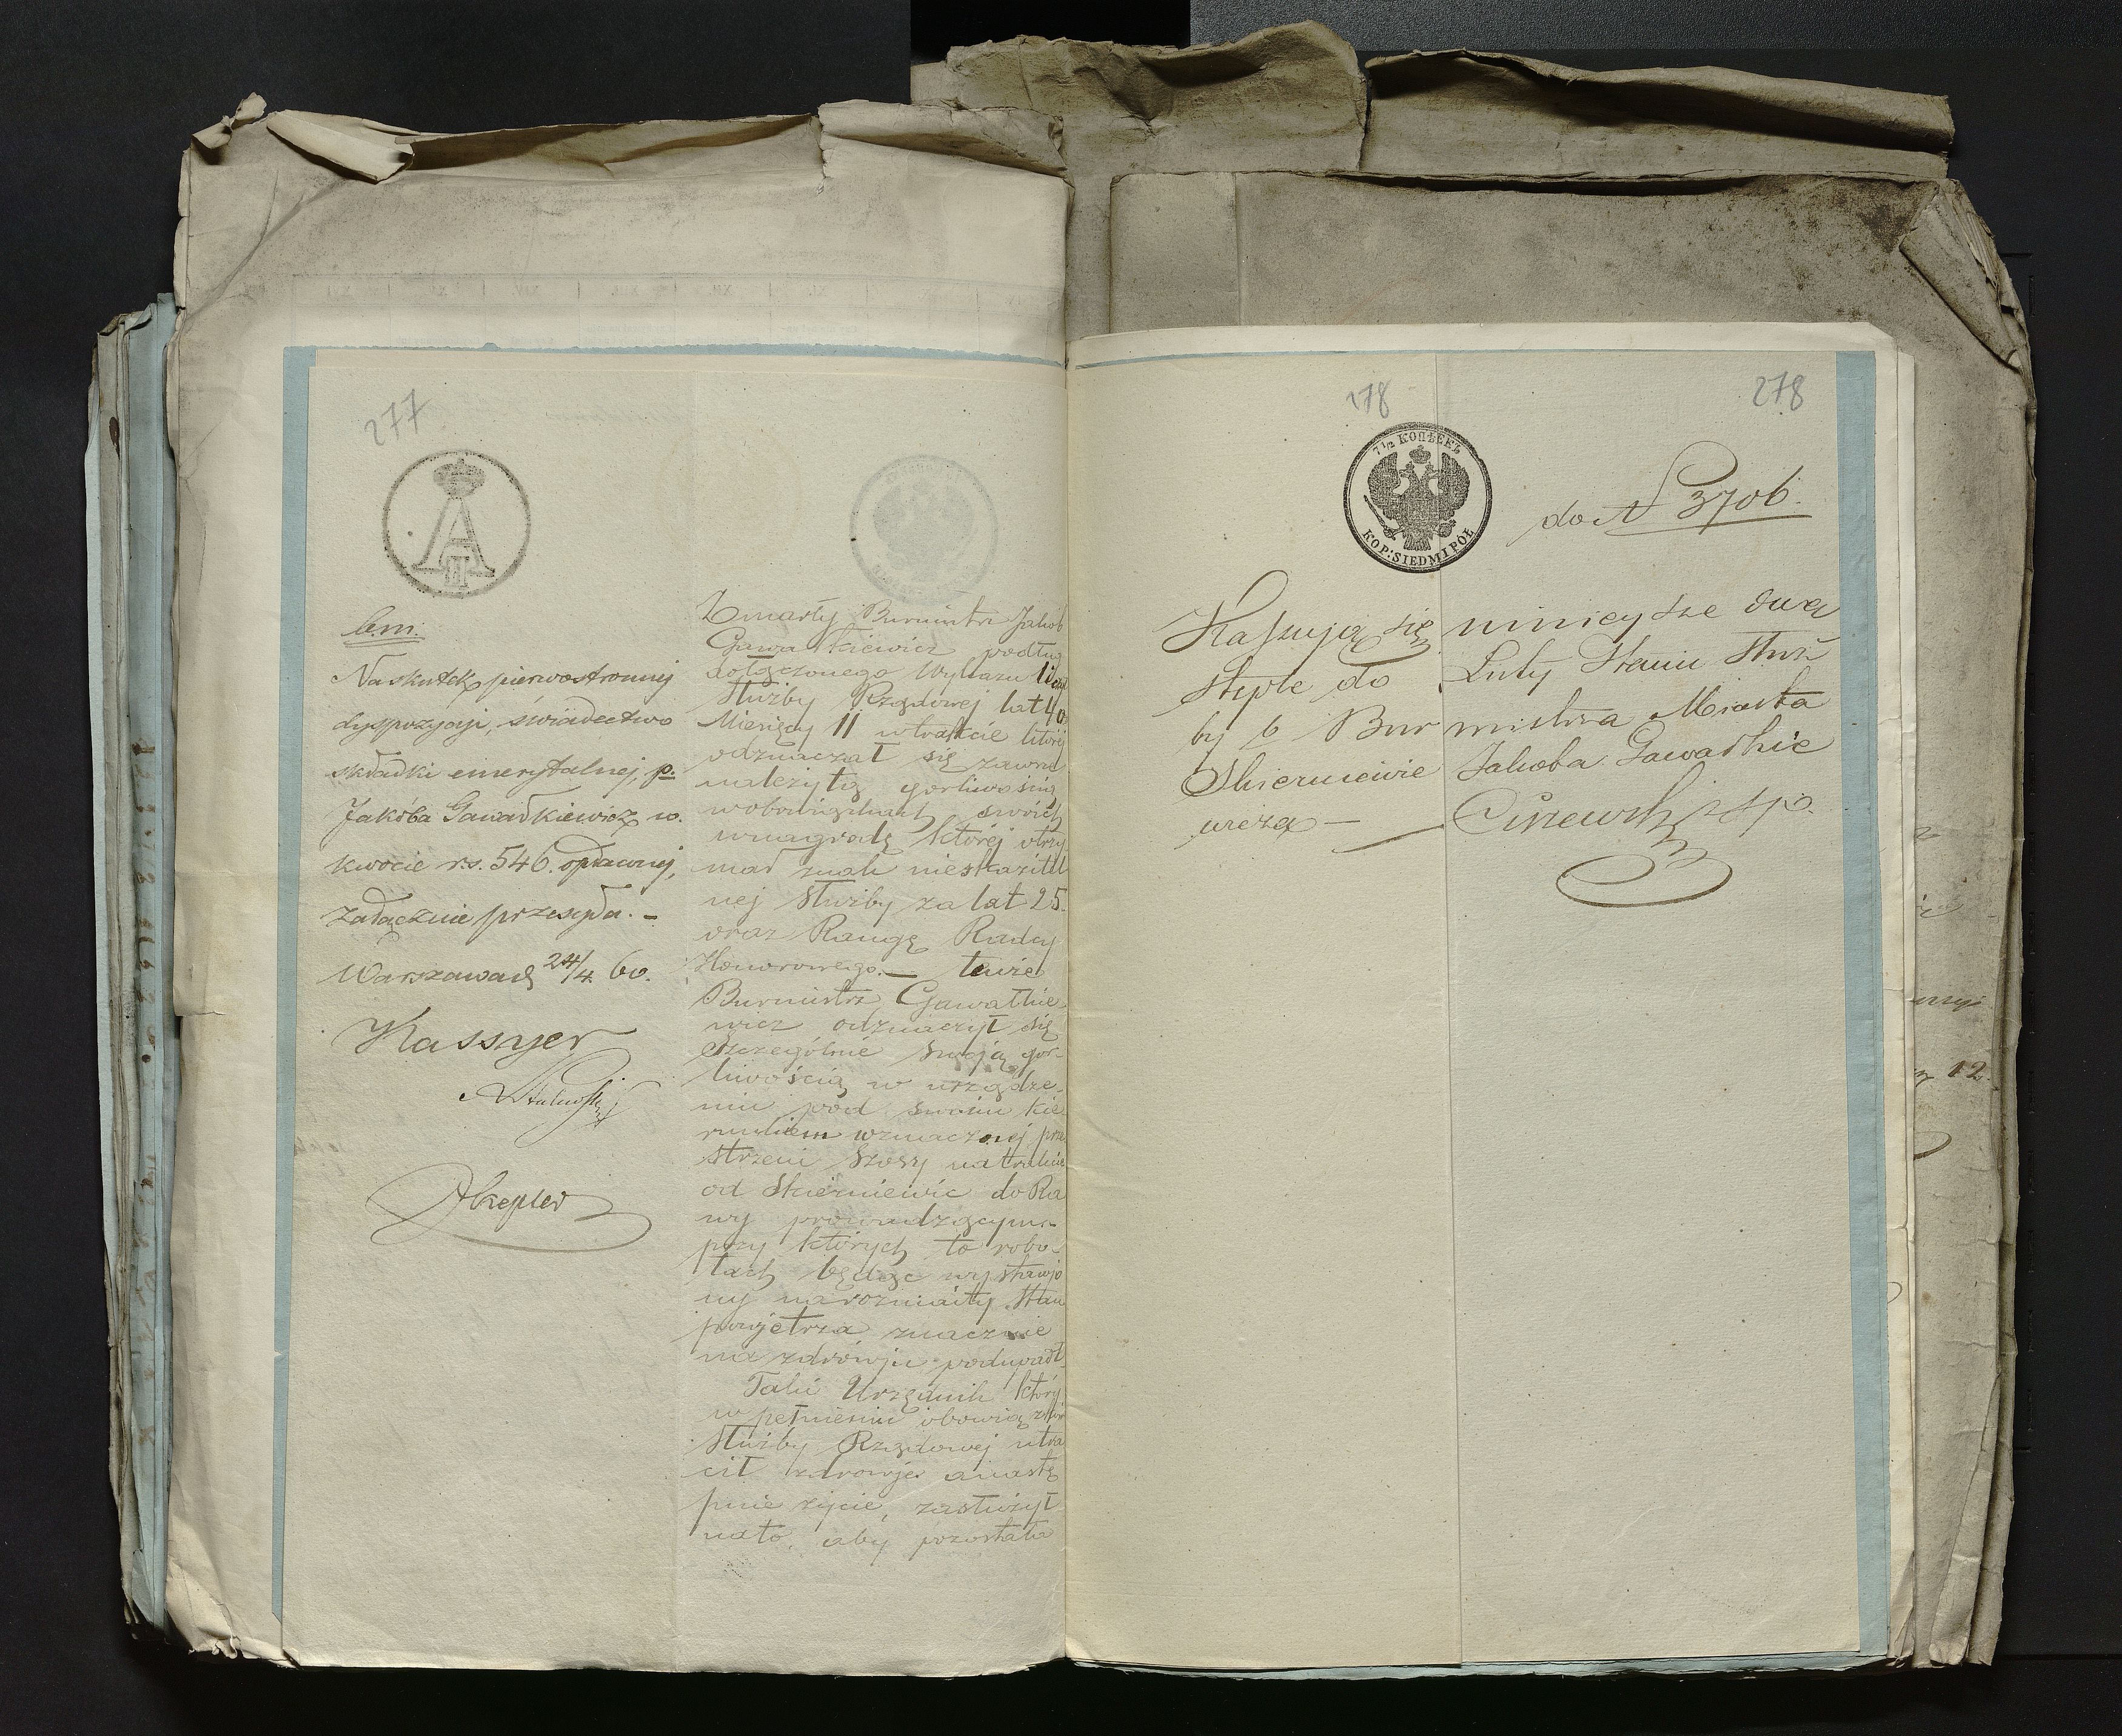 277
A
II
b.m.
Na skutek pierwostronnej
dyspozycyi, świadectwo
składki emerytalnej, p.
Jakóba Gawałkiewicz w.
kwocie rs. 546. opłaconej,
załącznie przesyła. –
Warszawa d 24/4 60.
Kassyer
Zmarły Burmistrz Jakób
Gawałkiewicz podług
dołączonego Wykazu liczył
Służby Rządowej lat 40
Miesięcy 11 w trakcie której
odznaczał się zawsze
należytą gorliwością
w obowiązkach swoich
w nagrodę której otrzy
mał znak nieskazitel
nej służby za lat 25.
oraz Rangę Radcy
Honorowego. — Tenże
Burmistrz Gawałkie
wicz odznaczył się
szczególnie swoją gor-
liwością w urządze-
niu pod swoim kie
runkiem wznaczonej prze
strzeni szosy na trakcie
od Skierniewic do Ra
wy prowadzącym.
przy których to robo
tach będąc wystawjo
ny na rozmaity stan
powjetrza znacznie
na zdrowju podupadł.
Taki Urzędnik który
w pełnieniu obowiązków
Służby Rządowej utra
cił zdrowje a nastę
pnie życie, zasłużył
na to, aby pozostała
178
278
7½ КОПѢЕКЪ
KOP: SIEDM I PÓŁ
do N 3706.
Kassują się niniejsze dwa
stęple do Listy Stanu Służ
by b Burmistrza Miasta
Skierniewic Jakóba Gawałkie
wicza —
12